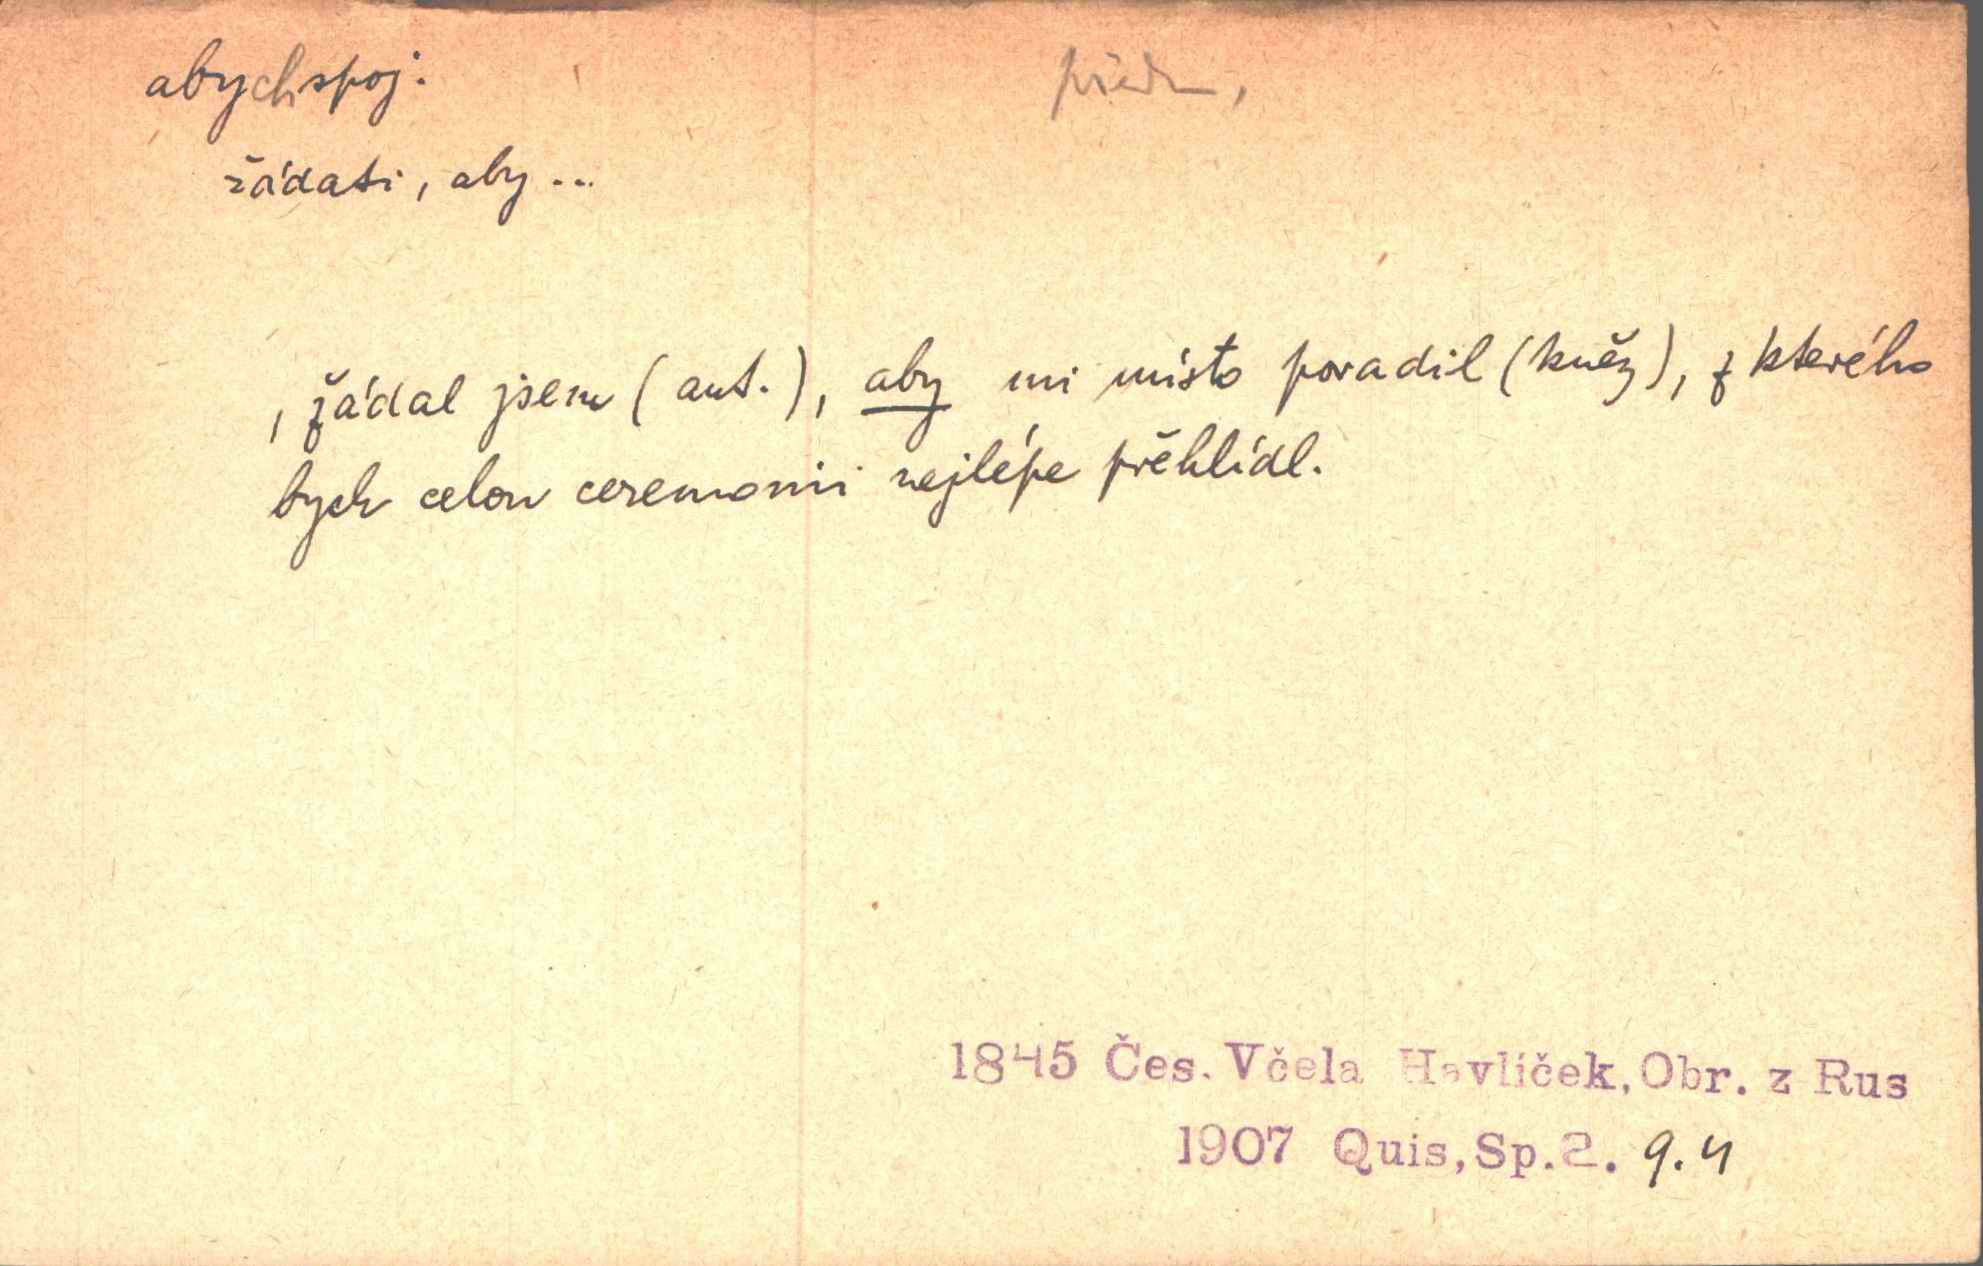 abych spoj.
žádati, aby ...
, žádal jsem (aut.), aby mi místo poradil (kněz), z kterého
bych celou ceremonii nejlépe přehlídl.
1845 Čes. Včela Havlíček, Obr. z Rus
1907 Quis, Sp. 2. 9.4